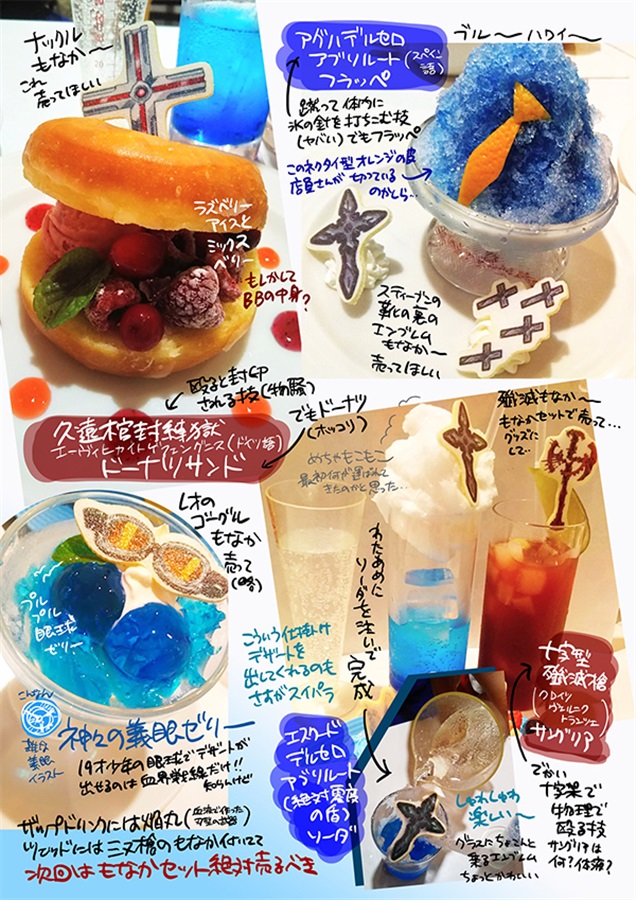 ナックル
もなか〜
これ
売ってほしい
アグハデルセロ
アブソルート(スペイン語)
フラッペ
ブル〜ハワイ〜
蹴って体内に
氷の針を打ちこむ技
(ヤバい)でもフラッペ
このネクタイ型オレンジの皮
店員さんが切っている
のかしら…
ラズベリー
アイスと
ミックス
ベリー
もしかして
BBの中身?
スティーブンの
靴の裏の
エンブレム
もなか〜
売ってほしい
殴ると封印
される技(物騒)
久遠棺封縛獄
エーヴィヒカイトゲフェングニス(ドイツ語)
ドーナツサンド
でもドーナツ
(ホッコリ)
めちゃもこもこ
最初何が運ばれて
きたのかと思った…
殲滅もなか〜
もなかセットで売って…
グッズに
して…
レオの
ゴーグル
もなか
売って
(略)
プル
プル
眼球
ゼリー
わたあめに
ソーダを注いで
完成
こういう仕掛け
デザートを
出してくれるのも
さすがスイパラ
こんなん
雑な
義眼の
イラスト
神々の義眼ゼリー
19才少年の眼球でデザートが
出せるのは血界戦線だけ!!
知らんけど
エスクード
デルセロ
アブソルート
(絶対零度
の盾)
ソーダ
十字型
殲滅槍
(クロイツ
ヴェルニク
ランツェ)
サングリア
でかい
十字架で
物理で
殴る技
サングリアは
何?体液?
しゅわしゅわ
楽しい〜
グラスにちょこんと
乗るエンブレム
ちょっとかわいい
ザップドリンクには焔丸(血液で作った
刃型の武器)
ツェッドには三叉槍のもなか付いてて
次回はもなかセット絶対売るべき